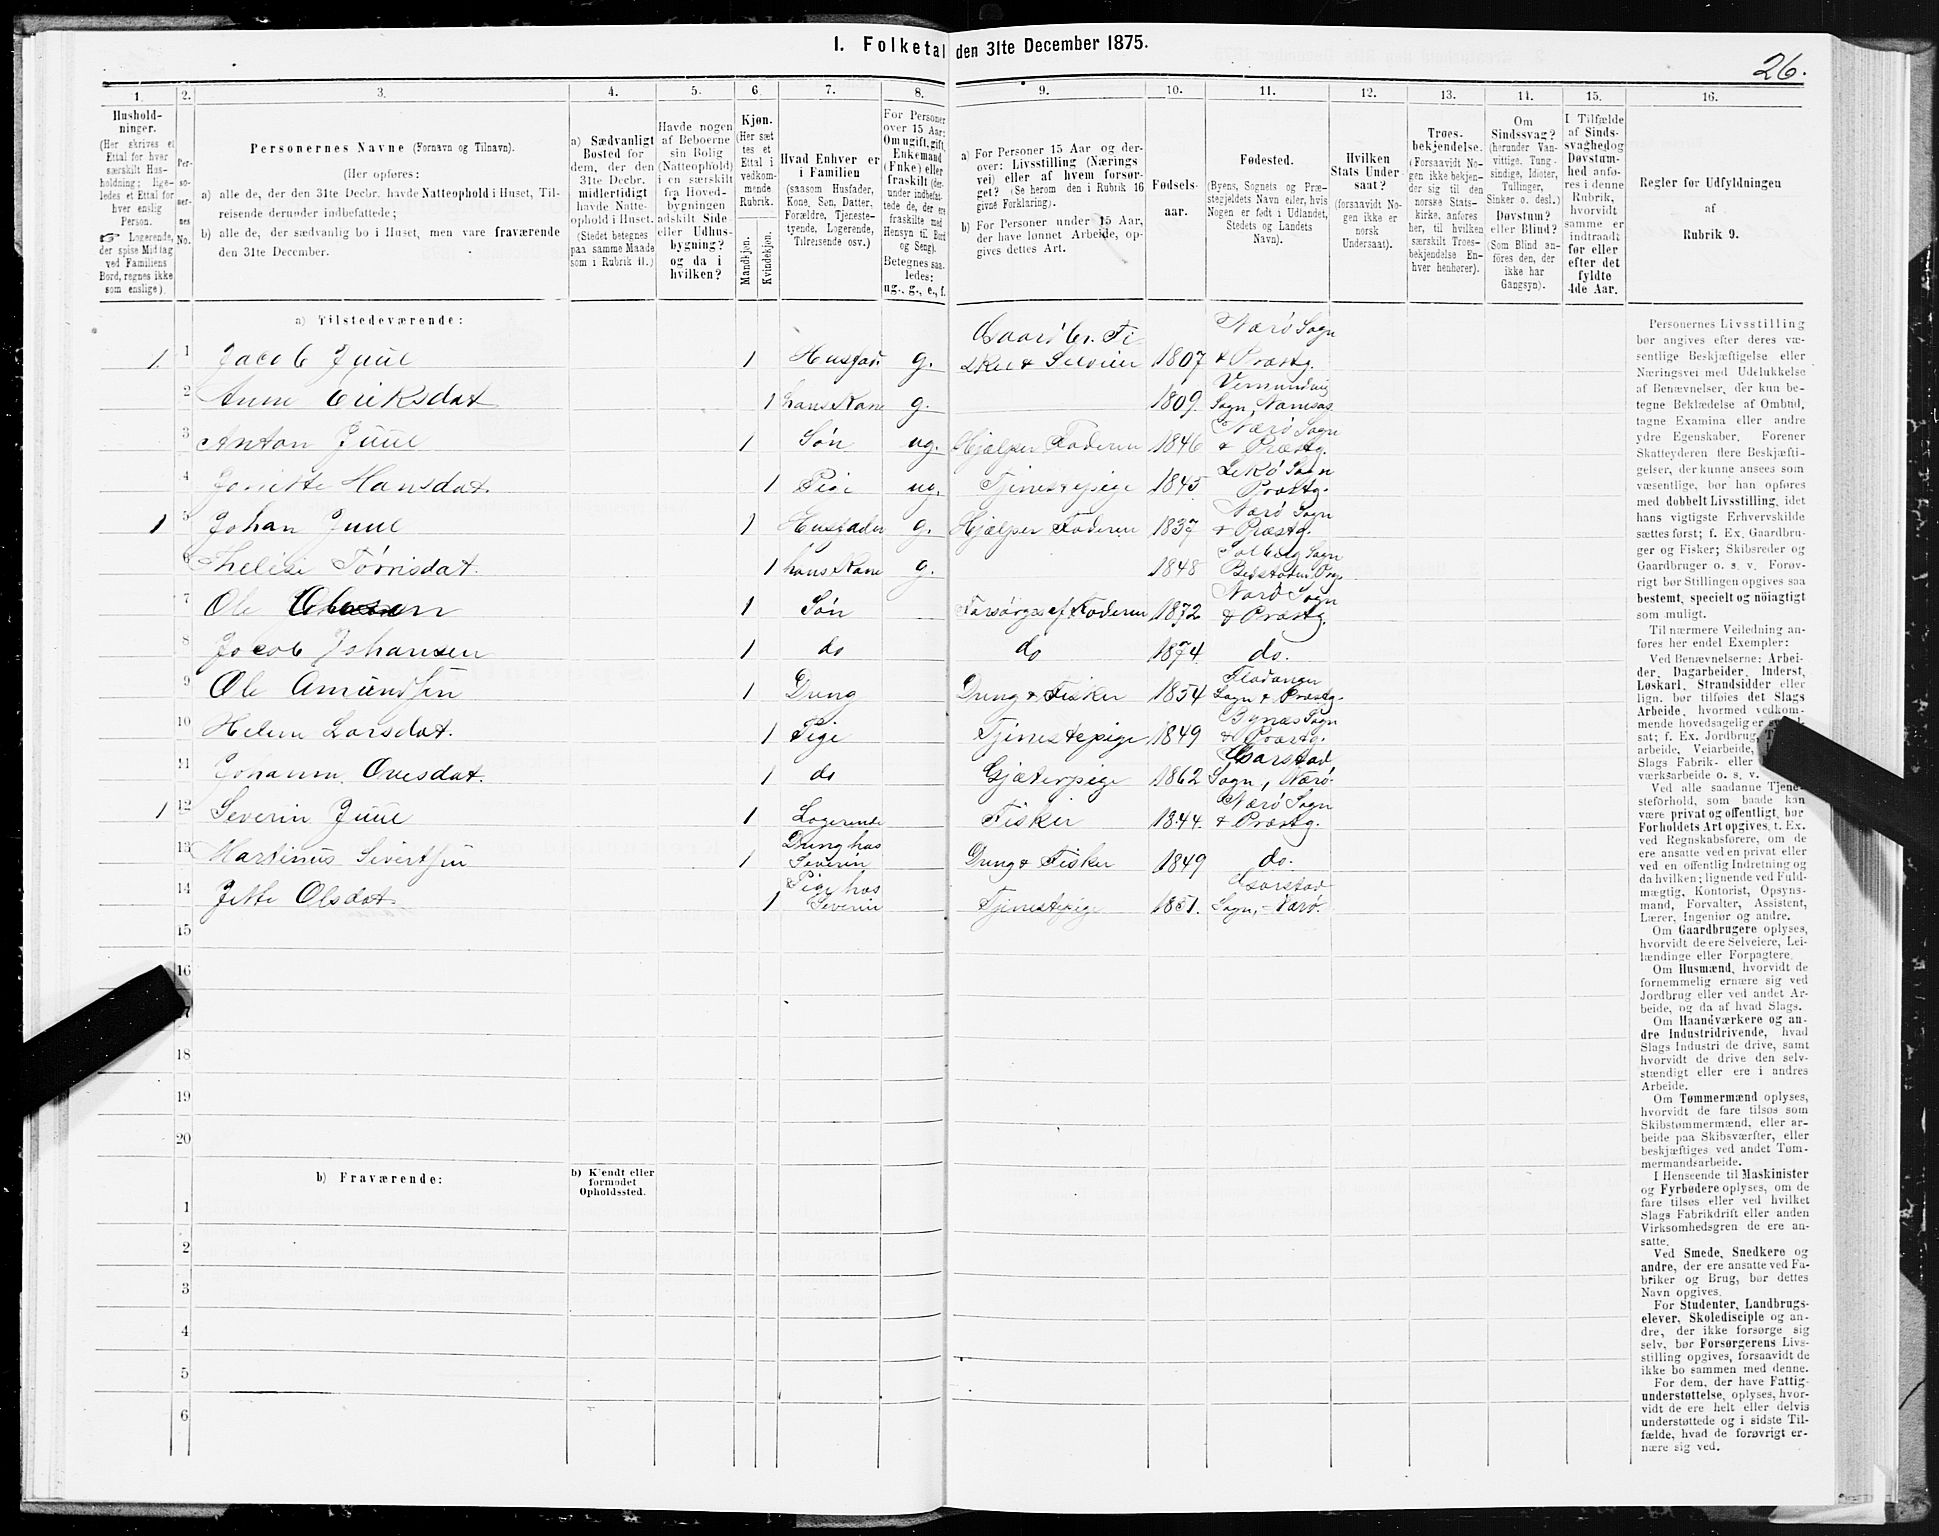 I. Folketal den 31te December 1875.
26.
1.
2.
3.
4.
5.
6.
7.
8.
9.
10.
11.
12.
13.
14.
15.
16.
Husholdninger.
(Her skrives et
Ettal for hver
særskilt Husholdning; ligeledes
et Ettal for
hver enslig
Person.
☞ Logerende,
der spise Middag
ved Familiens
Bord, regnes ikke
som enslige).
Personernes No.
Personernes Navne (Fornavn og Tilnavn).
(Her opføres:
a) alle de, der den 31te Decbr. havde Natteophold i Huset, Tilreisende derunder indbefattede;
b) alle de, der sædvanlig bo i Huset, men vare fraværende
den 31te December.
a) Sædvanligt
Bosted for
dem, der den
31te Decbr.
midlertidigt
havde Natteophold i Huset.
(Stedet betegnes
paa samme Maade
som i Rubrik 11.)
Havde nogen
af Beboerne
sin Bolig
(Natteophold)
i en særskilt
fra Hovedbygningen
adskilt Side-
eller Udhusbygning?
og da i
hvilken?
Kjøn.
(Her sættes et
Ettal i
vedkommende
Rubrik.
Mandkjøn.
Kvindekjøn.
Hvad Enhver er
i Familien
(saasom Husfader,
Kone, Søn, Datter,
Forældre, Tjenestetyende, Logerende,
Tilreisende osv.)
For Personer
over 15 Aar:
Om ugift, gift,
Enkemand
(Enke) eller
fraskilt (derunder indbefattede de, der ere
fraskilte med
Hensyn til Bord
og Seng).
Betegnes saaledes:
ug., g., e., f.
a) For Personer 15 Aar og derover: Livsstilling (Næringsvei) eller af hvem forsørget? (Se herom den i Rubrik 16
givne Forklaring).
b) For Personer under 15 Aar,
der have lønnet Arbeide, opgives dettes Art.
Fødselsaar.
Fødested.
(Byens, Sognets og Præstegjeldets Navn eller, hvis
Nogen er født i Udlandet,
Stedets og Landets
Navn).
Hvilken
Stats Undersaat?
(forsaavidt Nogen ikke er
norsk
Undersaat).
Troesbekjendelse.
(Forsaavidt Nogen ikke bekjender sig til den
norske Statskirke, anføres
her, til hvilken
særskilt Troesbekjendelse Enhver henhører).
Om
Sindssvag?
(herunder Vanvittige, Tungsindige, Idioter,
Tullinger,
Sinker o. desl.)
Døvstum?
eller Blind?
(Som Blind anføres den, der
ikke har
Gangsyn).
I Tilfælde
af Sindssvaghed og
Døvstumhed anføres i denne
Rubrik,
hvorvidt
samme er
indtraadt
før eller
efter det
fyldte
4de Aar.
Regler for Udfyldningen
af
Rubrik 9.
a) Tilstedeværende:
1. 1 Jacob Juul 1 Husfad. g. Gaardbr. Fisker & Selveier 1807 Nærø Sogn & Præstg.
2 Anne Eriksdat 1 hans Kone g. 1809 Vemundvig Sogn, Namsos
3 Anton Juul 1 Søn ug. Hjælper Faderen 1846 Nærø Sogn & Præstg.
4 Jonette Hansdat. 1 Pige ug. Tjenestepige 1845 Lekø Sogn Præstg.
1 5 Johan Juul 1 Husfader g. Hjælper Faderen 1837 Nærø Sogn & Præstg.
6 Torrisdat. 1 hans Kone g. 1848 Solberg Sogn Beitstaden Præg
7 Ole 1 Søn Forsørges af Faderen 1872 Nærø Sogn & Præstg.
8 Jacob Johansen 1 do do 1874. do.
9 Ole Amundsen 1 Dreng Dreng & Fisker 1854 Fladanger Sogn & Præstg.
10 Helene Larsdat. 1 Pige Tjenestepige 1849 Bynæs Sogn & Præstg.
11 Johanna Ovesdat. 1 do Gjæterpige 1862 Garstad Sogn, Nærø.
1 12 Severin Juul 1 Logerende Fisker 1844. Nærø Sogn & Præstg.
13 Martinus Sivertsen 1 Dreng hos Severin Dreng & Fisker 1849 do.
14 Jette Olsdat. 1 Pige hos Severin Tjenestepige 1851. Garstad Sogn, Nærø.
15
16
18
19
20
b) Fraværende:
b) Kjendt eller
formodet
Opholdssted.
1
2
3
4
5
6
Personernes Livsstilling
bør angives efter deres væsentlige Beskjæftigelse eller
Næringsvei med Udelukkelse
af Benævnelser, der kun betegne Beklædelse af Ombud,
tagne Examina eller andre
ydre Egenskaber. Forener
Skatteyderen flere Beskjæftigelser, der kunne ansees som
væsentlige, bør han opføres
med dobbelt Livsstilling, idet
hans vigtigste Erhvervskilde
sættes først; f. Ex. Gaardbruger og Fisker; Skibsreder og
Gaardbruger o. s. v. Forøvrigt bør Stillingen opgives saa
bestemt, specielt og nöiagtigt
som muligt.
Til nærmere Veiledning anføres her endel Exempler:
Ved Benævnelserne: Arbeider, Dagarbeider, Inderst,
Løskarl, Strandsidder eller
lign. bør tilføies det Slags
Arbeide, hvormed vedkommende hovedsagelig er
sat; f. Ex. Jordbrug,
arbeide, Veiarbeide,
Slags Fabrik- eller
værksarbeide o. s. v.
Ved alle saadanne Tjenesteforhold, som baade kan
være privat og offentligt, bør
Forholdets Art opgives, t. Ex.
ved Regnskabsførere, om de
ere ansatte ved en privat eller
ved en offentlig Indretning og
da hvilken; lignende ved Fuldmægtig, Kontorist, Opsynsmand, Forvalter, Assistent,
Lærer, Ingeniør og andre.
Om Gaardbrugere oplyses,
hvorvidt de ere Selveiere, Leilændinge eller Forpagtere.
Om Husmænd, hvorvidt de
fornemmelig ernære sig ved
Jordbrug eller ved andet Arbeide, og da af hvad Slags.
Om Haandværkere og andre Industridrivende, hvad
Slags Industri de drive, samt
hvorvidt de drive den selvstændigt eller ere i andres
Arbeide.
Om Tømmermænd oplyses,
hvorvidt de fare tilsøs som
Skibstømmermænd, eller arbeide paa Skibsværfter, eller
beskjæftiges ved andet Tømmermandsarbeide.
I Henseende til Maskinister
og Fyrbødere oplyses, om de
fare tilsøs eller ved hvilket
Slags Fabrikdrift eller anden
Virksomhedsgren de ere ansatte.
Ved Smede, Snedkere og
andre, der ere ansatte ved Fabriker og Brug, bør dettes
Navn opgives.
For Studenter, Landbrugselever, Skoledisciple og andre, der ikke forsørge sig
selv, bør Forsørgerens Livsstilling opgives, forsaavidt de
ikke bo sammen med denne.
For dem, der have Fattigunderstøttelse, oplyses, hvorvidt de ere helt eller delvis
understøttede og i sidste Tilfælde, hvad de forøvrigt ernære sig ved.